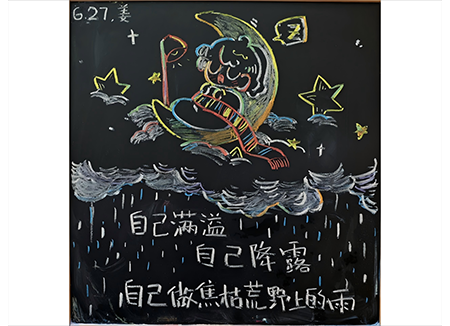 6.27.姜
Z
自己满溢
自己降露
自己做焦枯荒野上的雨